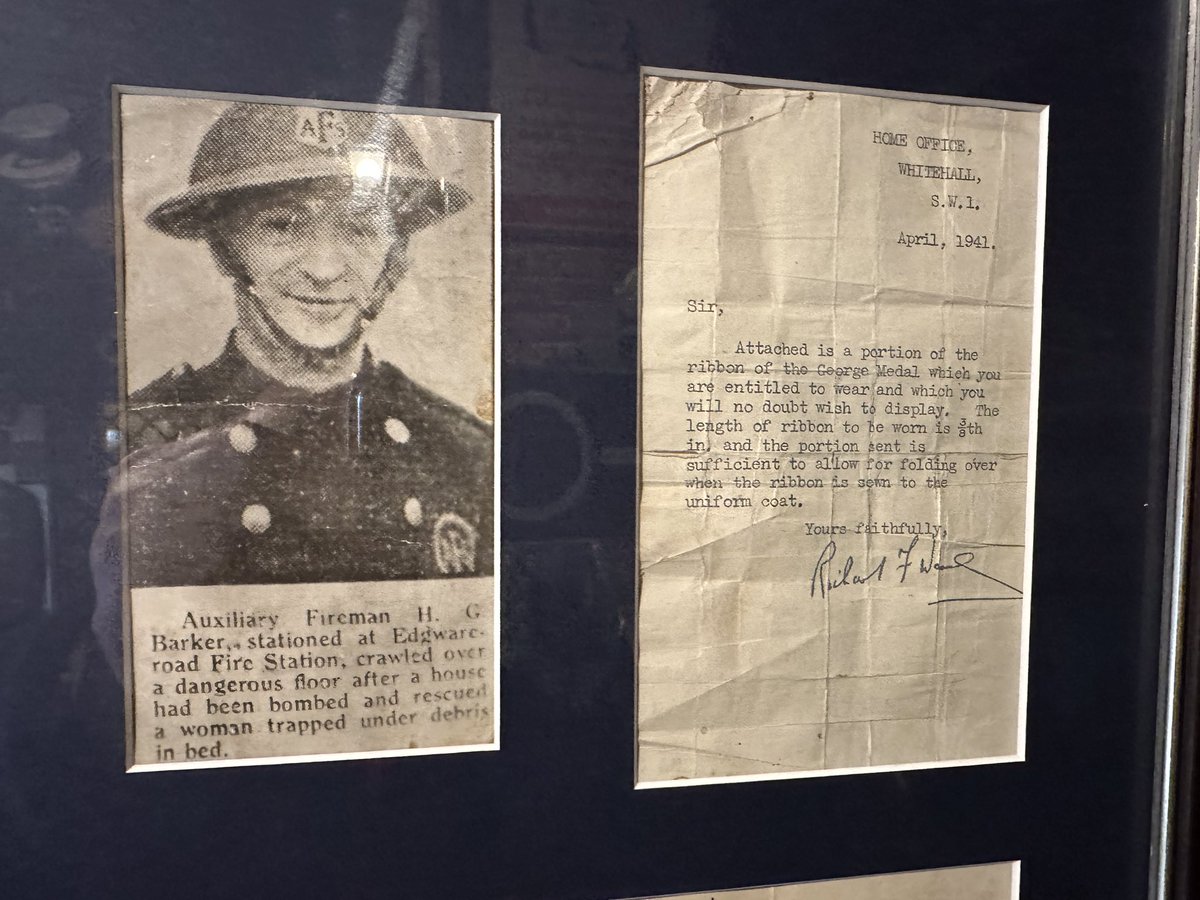 AFS
Auxiliary Fireman H. G
Barker, stationed at Edgware-
road Fire Station, crawled over
a dangerous floor after a house
had been bombed and rescued
a woman trapped under debris
in bed.
HOME OFFICE,
WHITEHALL,
S.W.1.
April, 1941.
Sir,
Attached is a portion of the
ribbon of the George Medal which you
are entitled to wear and which you
will no doubt wish to display. The
length of ribbon to be worn is ⅜th
in. and the portion sent is
sufficient to allow for folding over
when the ribbon is sewn to the
uniform coat.
Yours faithfully,
Richard F